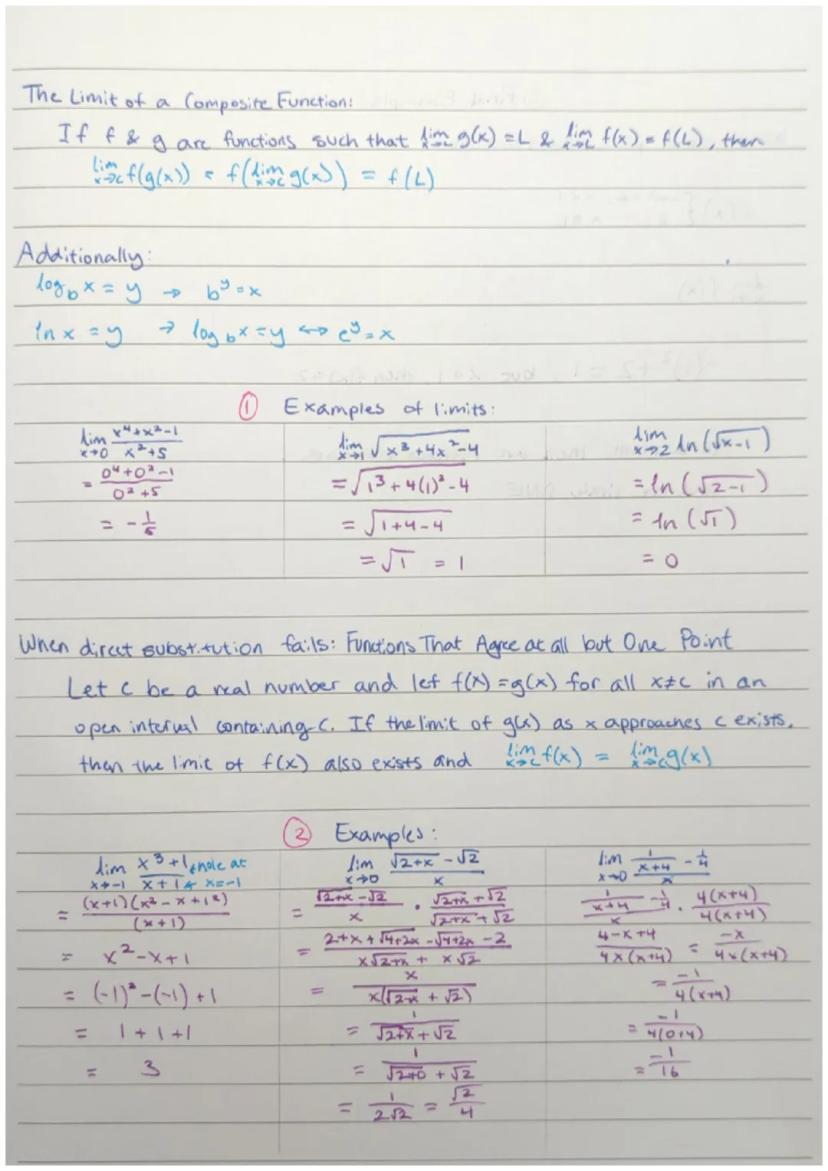 The Limit of a Composite Function:
If f & g are functions such that lim x→c g(x) = L & lim x→L f(x) = f(L), then
lim x→c f(g(x)) = f(lim x→c g(x)) = f(L)
Additionally:
log_b x = y → b^y = x
ln x = y → log_b x = y ↔ e^y = x
① Examples of limits:
lim x→0 (x^4+x^2-1)/(x^2+5)
= (0^4+0^2-1)/(0^2+5)
= -1/5
lim x→1 √(x^3+4x^2-4)
= √(1^3+4(1)^2-4)
= √(1+4-4)
= √1 = 1
lim x→2 ln(√x-1)
= ln(√2-1)
= ln(√1)
= 0
When direct substitution fails: Functions That Agree at all but One Point
Let c be a real number and let f(x) = g(x) for all x≠c in an
open interval containing c. If the limit of g(x) as x approaches c exists,
then the limit of f(x) also exists and lim x→c f(x) = lim x→c g(x)
② Examples:
lim x→-1 (x^3+1)/(x+1) ← hole at x=-1
= (x+1)(x^2-x+1^2)/(x+1)
= x^2-x+1
= (-1)^2-(-1)+1
= 1+1+1
= 3
lim x→0 (√(2+x) - √2)/x
= (√(2+x) - √2)/x · (√(2+x) + √2)/(√(2+x) + √2)
= (2+x+√(4+2x) - √(4+2x) - 2)/(x√(2+x) + x√2)
= x/(x(√(2+x) + √2))
= 1/(√(2+x) + √2)
= 1/(√(2+0) + √2)
= 1/(2√2) = √2/4
lim x→0 (1/(x+4) - 1/4)/x
(1/(x+4) - 1/4)/x · 4(x+4)/4(x+4)
(4-x+4)/(4x(x+4)) = -x/(4x(x+4))
= -1/(4(x+4))
= -1/(4(0+4))
= -1/16